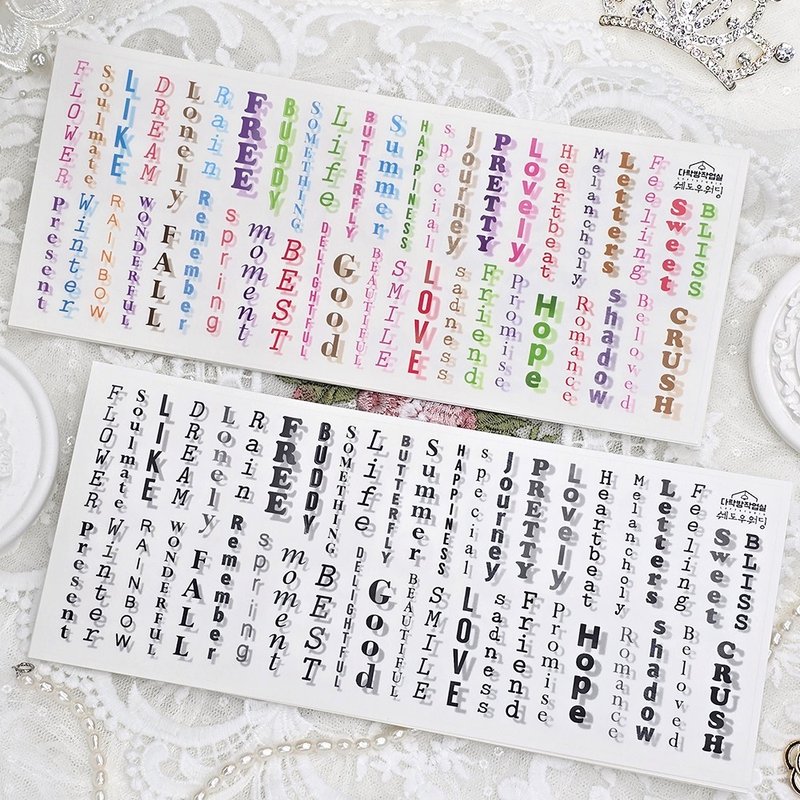 FLOWER
Soulmate
LIKE
DREAM
Lonely
Rain
FREE
BUDDY
SOMETHING
Life
BUTTERFLY
Summer
HAPPINESS
special
Journey
PRETTY
Lovely
Heartbeat
Melancholy
Letters
Feeling
Sweet
BLISS
다락방작업실
쉐도우워딩
Present
Winter
RAINBOW
WONDERFUL
FALL
Remember
spring
moment
BEST
DELIGHTFUL
Good
BEAUTIFUL
SMILE
LOVE
sadness
Friend
Promise
Hope
Romance
shadow
Beloved
CRUSH
FLOWER
Soulmate
LIKE
DREAM
Lonely
Rain
FREE
BUDDY
SOMETHING
Life
BUTTERFLY
Summer
HAPPINESS
special
Journey
PRETTY
Lovely
Heartbeat
Melancholy
Letters
Feeling
Sweet
BLISS
다락방작업실
쉐도우워딩
Present
Winter
RAINBOW
WONDERFUL
FALL
Remember
spring
moment
BEST
DELIGHTFUL
Good
BEAUTIFUL
SMILE
LOVE
sadness
Friend
Promise
Hope
Romance
shadow
Beloved
CRUSH